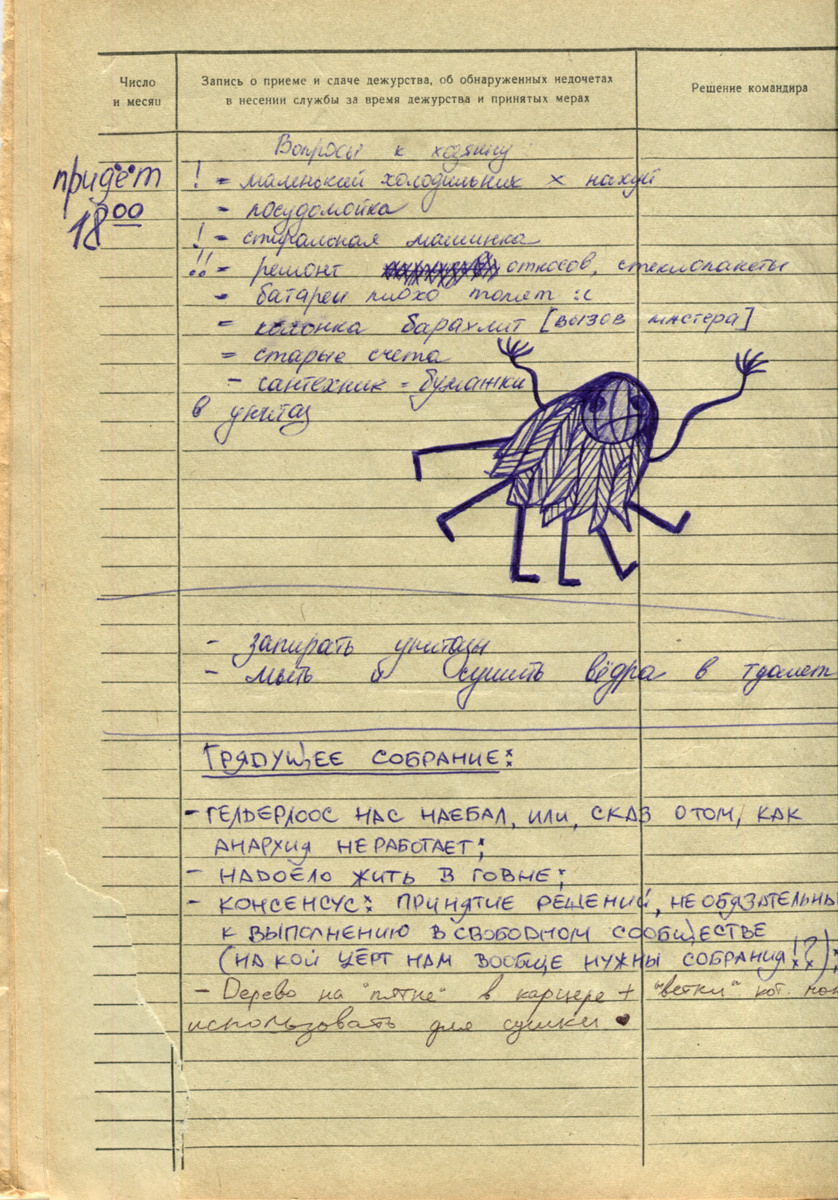 Число
и месяц
Запись о приеме и сдаче дежурства, об обнаруженных недочетах
в несении службы за время дежурства и принятых мерах
Решение командира
придёт
18 00
Вопросы к хозяину
! - маленький холодильник × нахуй
- посудомойка
! - стиральная машинка
!! - ремонт откосов, стеклопакеты
- батареи плохо топят :с
- колонка барахлит [вызов мастера]
= старые счета
- сантехник - бумажки
в унитаз
- запирать унитазы
- мыть и сушить вёдра в туалет
ГРЯДУЩЕЕ СОБРАНИЕ:
- ГЕЛДЕРЛООС НАС НАЕБАЛ, ИЛИ, СКАЗ О ТОМ, КАК
АНАРХИЯ НЕ РАБОТАЕТ;
- НАДОЕЛО ЖИТЬ В ГОВНЕ;
- КОНСЕНСУС: ПРИНЯТИЕ РЕШЕНИЙ, НЕОБЯЗАТЕЛЬНЫ
К ВЫПОЛНЕНИЮ В СВОБОДНОМ СООБЩЕСТВЕ
(НА КОЙ ЧЁРТ НАМ ВООБЩЕ НУЖНЫ СОБРАНИЯ!?);
- Дерево на "пятке" в карцере + "ветки" кот. мож
использовать для сушки